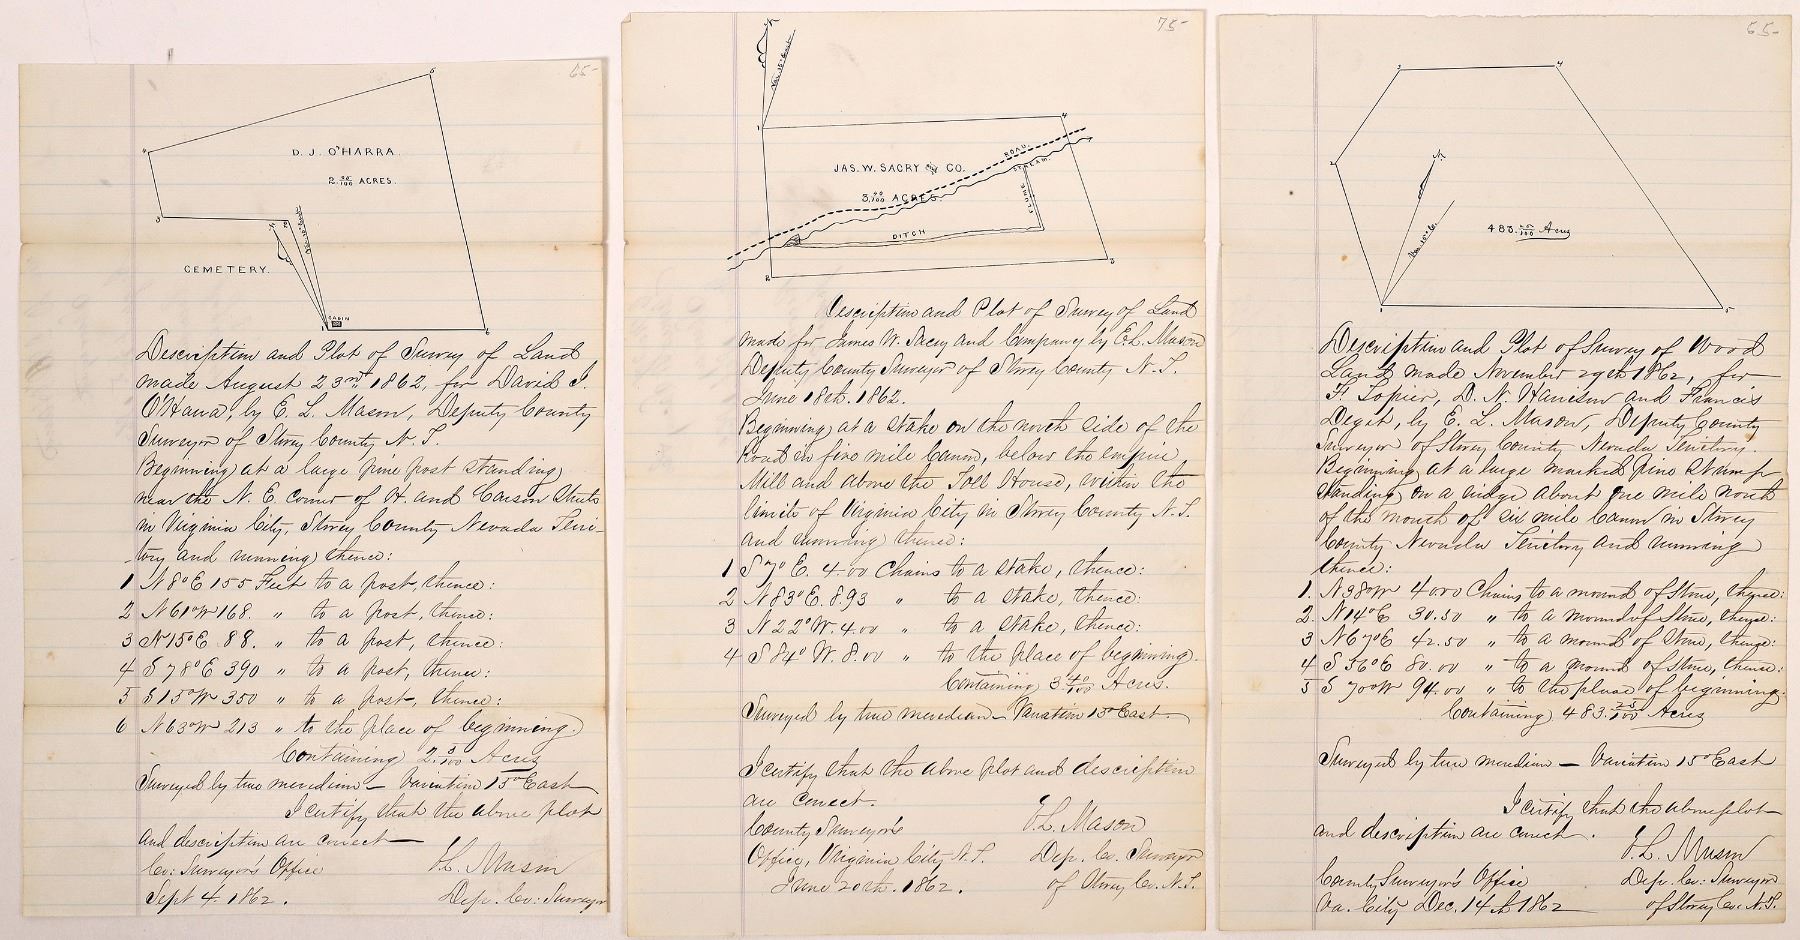 65-
5
4
D. J. O'HARRA.
2 35/100 ACRES.
3
2
CEMETERY.
CABIN
1
6
Description and Plot of Survey of Land
made August 23rd, 1862, for David J.
O'Harra, by E. L. Mason, Deputy County
Surveyor of Storey County N. T.
Beginning at a large pine post standing
near the N. E. corner of H. and Carson Streets
in Virginia City, Storey County Nevada Terri-
-tory and running thence:
1 N 8° E 155 Feet to a post, thence:
2 N 61° W 168. " to a post, thence:
3 N 15° E 88. " to a post, thence:
4 S 78° E 390 " to a post, thence:
5 S 15° W 350 " to a post, thence:
6 N 63° W 213 " to the place of beginning.
Containing 2. /100 Acres
Surveyed by true meridian - Variation 15° East
I certify that the above plot
and description are correct
Co: Surveyor's Office
E. L. Mason
Sept 4. 1862.
Dep. Co: Surveyor
75-
N
Var. 15° East
1
4
ROAD.
STREAM.
JAS. W. SACRY and CO.
3 40/100 ACRES.
FLUME
DITCH
2
3
Description and Plot of Survey of Land
made for James W. Sacry and Company by E. L. Mason
Deputy County Surveyor of Storey County N. T.
June 18th. 1862.
Beginning at a stake on the north side of the
Road in five mile Canon, below the empire
Mill and above the Toll House, within the
limits of Virginia City in Storey County N. T.
and running thence:
1 S 7° E. 4.00 Chains to a stake, thence:
2 N 83° E. 8.93 " to a stake, thence:
3 N 22° W. 4.00 " to a stake, thence:
4 S 84° W. 8.00 " to the place of beginning.
Containing 3 40/100 Acres.
Surveyed by true meridian - Variation 15° East.
I certify that the above plot and description
are correct.
County Surveyor's
E. L. Mason
Office, Virginia City N. T.
Dep. Co. Surveyor
June 20th. 1862.
of Storey Co. N. T.
65-
3
4
2
N
Var. 15° E.
483. 25/100 Acres
1
5
Description and Plot of Survey of Wood
Land made November 29th 1862, for
F. Lopier, D. N. Harrison and Francis
Degit, by E. L. Mason, Deputy County
Surveyor of Storey County Nevada Territory.
Beginning at a large marked pine stump
standing on a ridge about one mile north
of the mouth of six mile Canon in Storey
County Nevada Territory and running
thence:
1. N 38° W 40.00 Chains to a mound of stone, thence:
2. N 14° E 30.50 " to a mound of stone, thence:
3 N 67° E 42.50 " to a mound of stone, thence:
4 S 56° E 80.00 " to a mound of stone, thence:
5 S 70° W 94.00 " to the place of beginning.
Containing 483. 25/100 Acres
Surveyed by true meridian - Variation 15° East
I certify that the above plot
and description are correct.
E. L. Mason
County Surveyor's Office
Dep. Co: Surveyor
Va. City Dec. 14th 1862
of Storey Co. N. T.